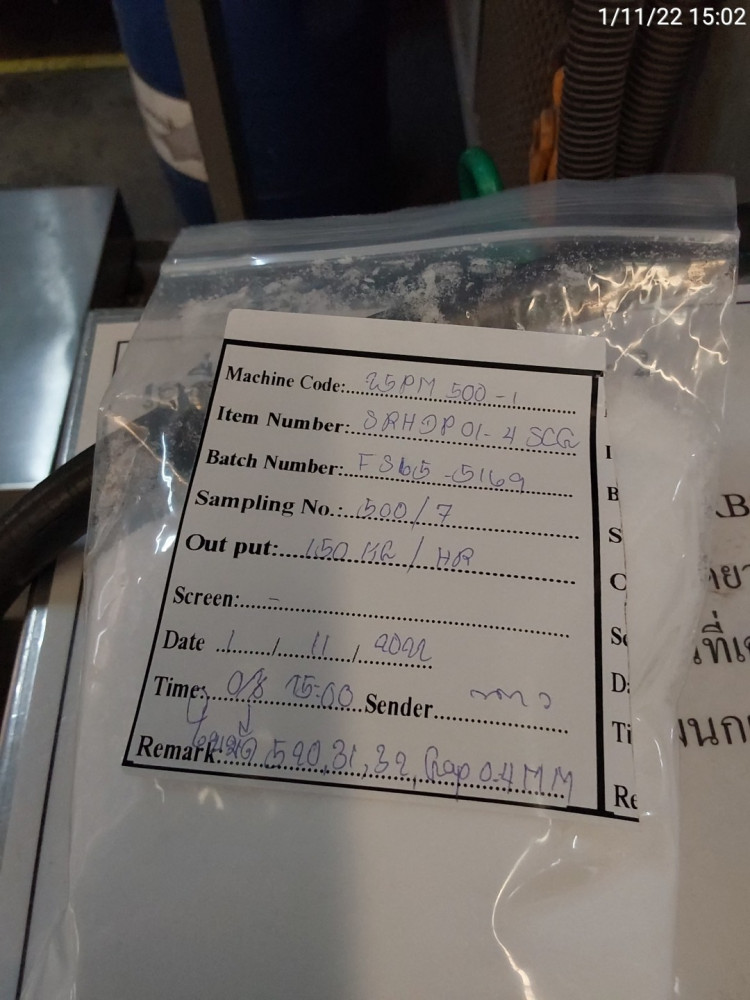 1/11/22 15:02
Machine Code: 25PM 500-1
Item Number: SRHDP 01-4 SCG
Batch Number: FS65-5169
Sampling No.: 500/7
Out put: 150 KG / HR
Screen: -
Date 1 / 11 / 2022
Time: 15:00 Sender
Remark: ใบมีด 520, 31, 32, Gap 0.4 MM
I
B
S
C
Se
Da
Ti
Re